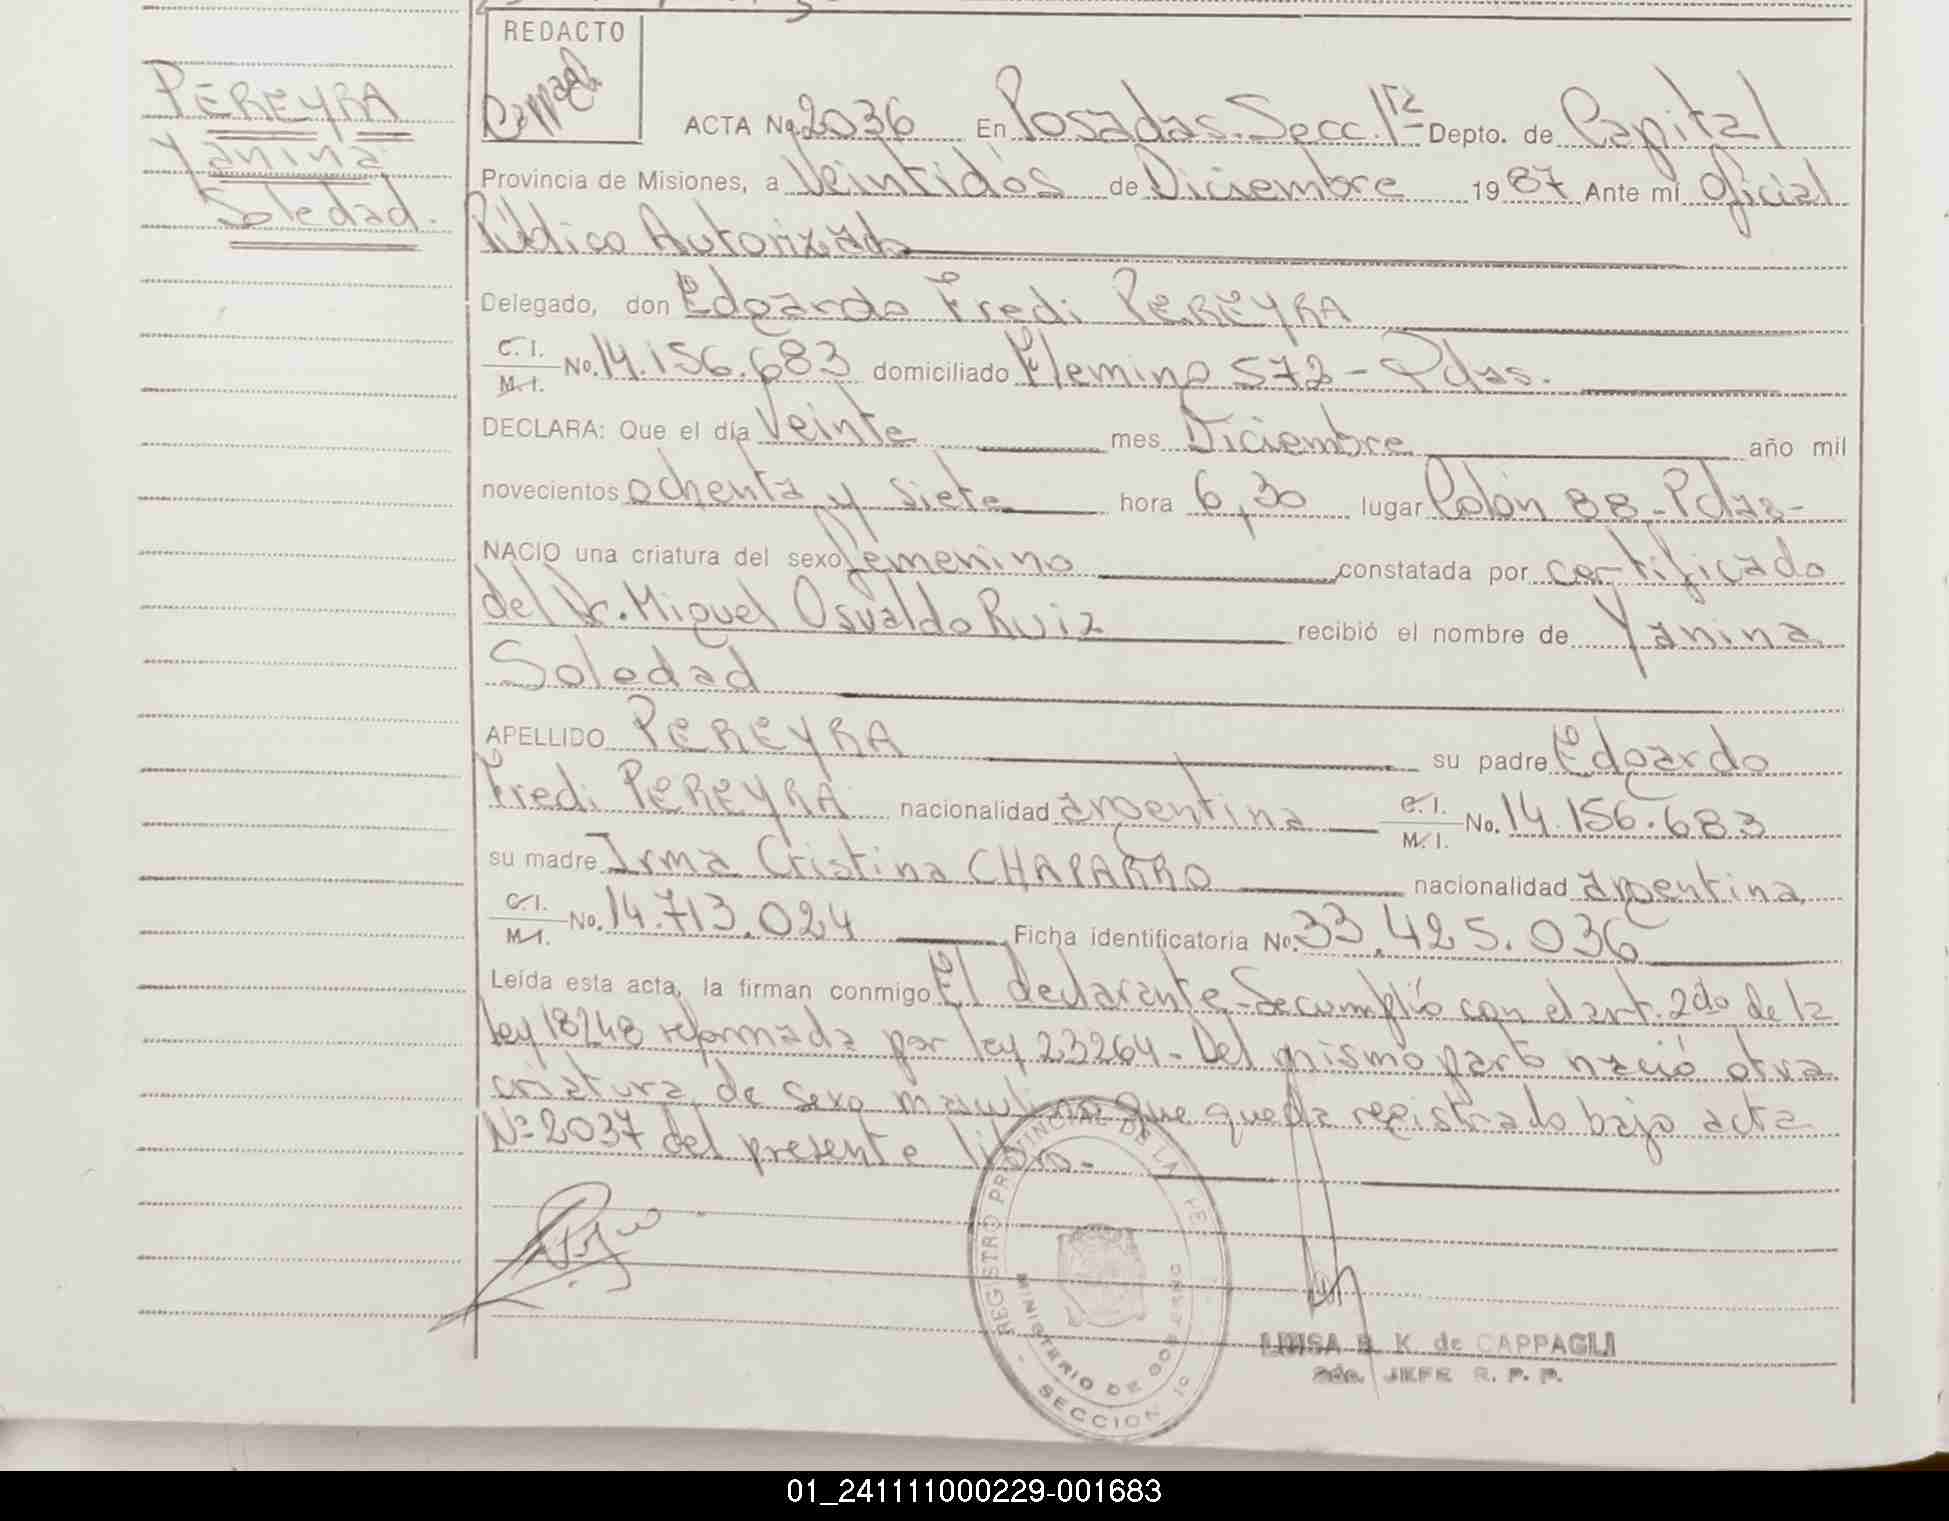 REDACTO
PEREYRA
Yanina
Soledad.
ACTA No. 2036 En Posadas. Secc. 1ra Depto. de Capital
Provincia de Misiones, a Veintidós de Diciembre 1987 Ante mi Oficial
Público Autorizado
Delegado, don Edgardo Fredi PEREYRA
C.I. M.I. No. 14.156.683 domiciliado Fleming 572 - Pdas.
DECLARA: Que el día Veinte mes Diciembre año mil
novecientos ochenta y siete hora 6,30 lugar Colón 88 - Pdas -
NACIO una criatura del sexo femenino constatada por certificado
del Dr. Miguel Osvaldo Ruiz recibió el nombre de Yanina
Soledad
APELLIDO PEREYRA su padre Edgardo
Fredi PEREYRA nacionalidad argentina C.I. M.I. No. 14.156.683
su madre Irma Cristina CHAPARRO nacionalidad argentina
C.I. M.I. No. 14.713.024 Ficha identificatoria No. 33.425.036
Leída esta acta, la firman conmigo El declarante - Se cumplió con el art. 2do de la
ley 18248 reformada por ley 23264 - Del mismo parto nació otra
criatura de sexo masculino que queda registrado bajo acta
Nº 2037 del presente libro -
REGISTRO PROVINCIAL DE LA
MINISTERIO DE GOBIERNO
SECCION 1º
LUISA B. K. de CAPPAGLI
2da. JEFE R. P. P.
01_241111000229-001683